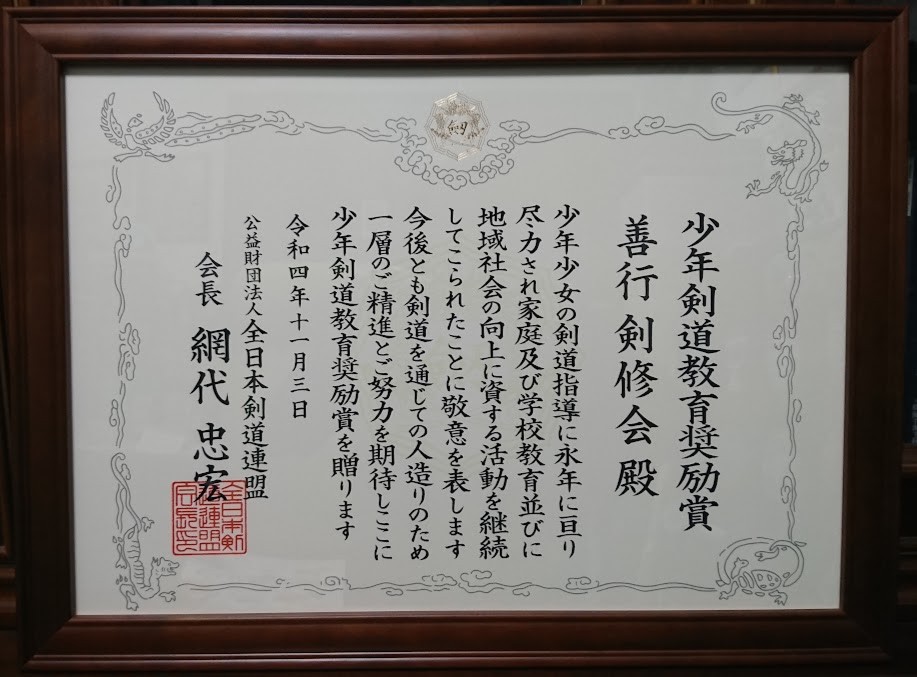 少年剣道教育奨励賞
善行剣修会殿
少年少女の剣道指導に永年に亘り
尽力され家庭及び学校教育並びに
地域社会の向上に資する活動を継続
してこられたことに敬意を表します
今後とも剣道を通じての人造りのため
一層のご精進とご努力を期待しここに
少年剣道教育奨励賞を贈ります
令和四年十一月三日
公益財団法人全日本剣道連盟
会長 網代忠宏